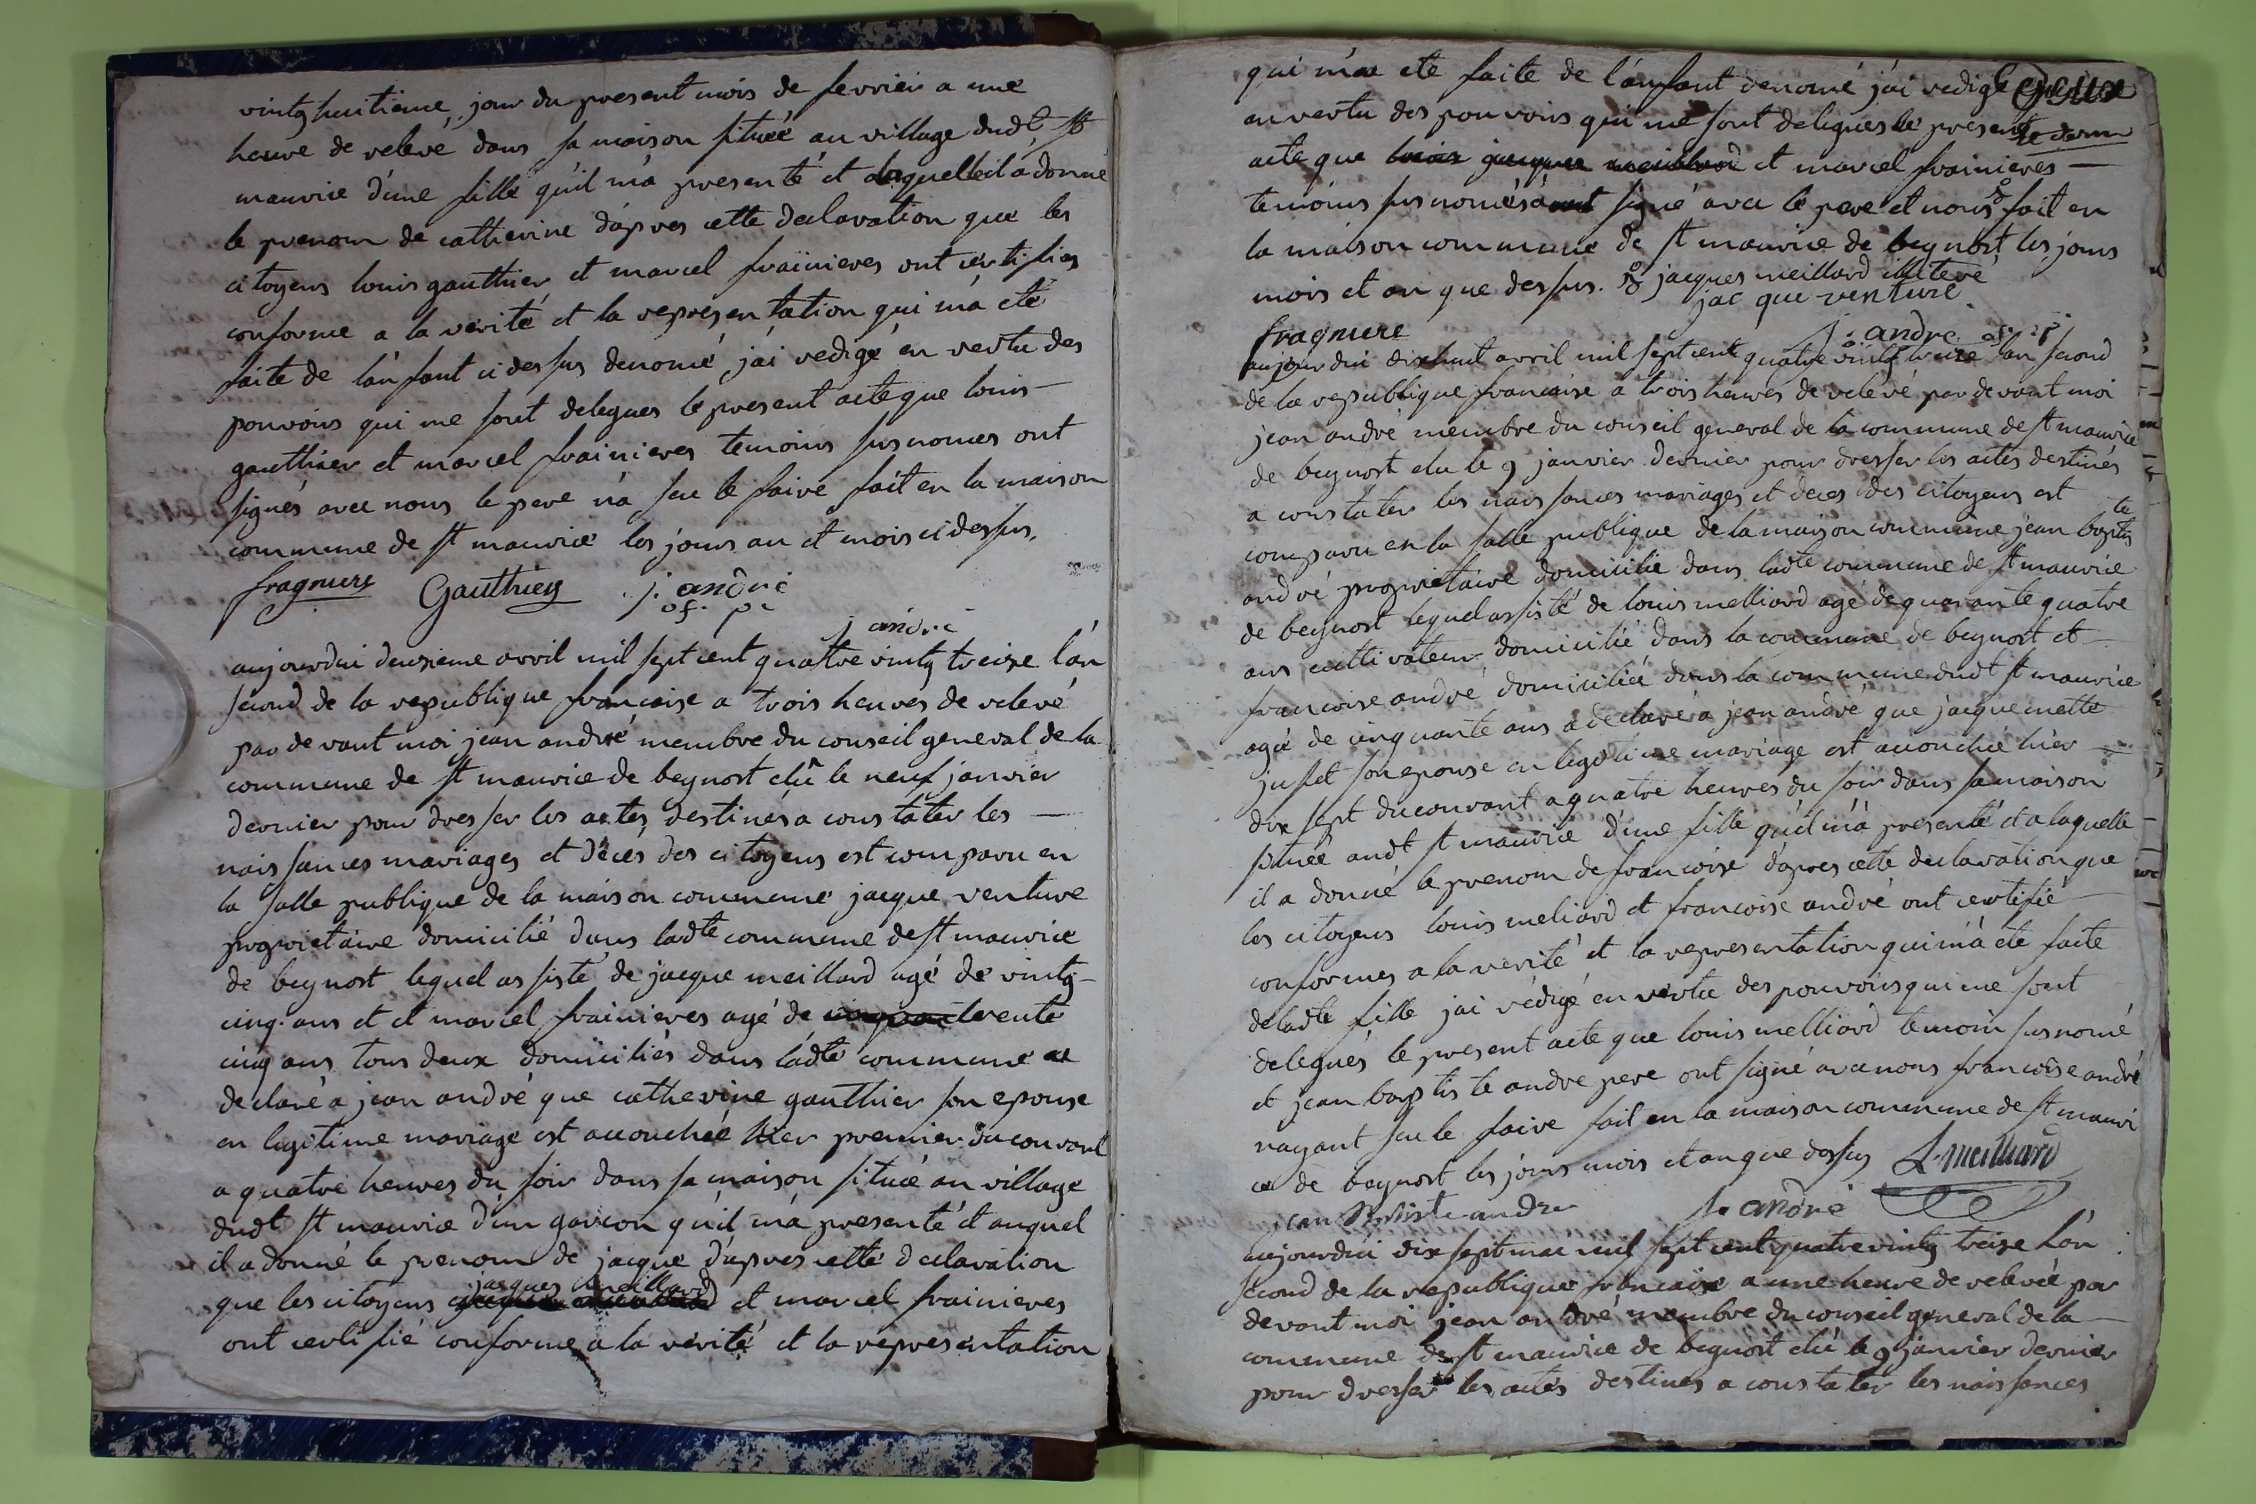 vintg huitieme jour du present mois de fevrier a une
heure de relevé dans sa maison située au village dudt st
maurice d'une fille qu'il m'a presenté et a laquelle il a donné
le prenom de catherine d'apres cette declaration que les
citoyens louis gauthier et marcel frainieres ont certifiés
conforme a la verité et la representation qui m'a eté
faite de l'anfant ci dessus denomé j'ai redigé en vertu des
pouvoirs qui me sont delegues le present acte que louis
gauthier et marcel frainieres temoins susnomes ont
signés avec nous le pere n'a scu le faire fait en la maison
commune de st maurice les jours an et mois ci dessus.
fragniere Gauthier j. andré
of. p.
j andré
aujourdui deuxieme avril mil sept cent quatre vintg treize l'an
second de la republique francaise a trois heures de relevé
par devant moi jean andré membre du conseil general de la
commune de st maurice de beynost elû le neuf janvier
dernier pour dresser les actes destinés a constater les
naissances mariages et décés des citoyens est comparu en
la salle publique de la maison commune jacque venture
proprietaire domicilié dans ladte commune de st maurice
de beynost lequel assisté de jacque meillard agé de vintg
cinq ans et et marcel frainieres agé de trente
cinq ans tous deux domiciliés dans ladte commune a
declaré a jean andré que catherine gauthier son epouse
en legitime mariage est accouchée hier premier du courant
a quatre heures du soir dans sa maison située au village
dudt st maurice d'un garcon qu'il m'a presenté et auquel
il a donné le prenom de jacque d'apres cette declaration
que les citoyens jacques meillard et marcel frainieres
ont certifié conforme a la verité et la representation
qui m'a ete faite de l'anfant denomé j'ai redigé deux
en vertu des pouvoirs qui me sont delegués le present
acte que louis jacque meillard et marcel frainieres
temoins susnomés ont signé avec le pere et nous fait en
la maison commune de st maurice de beynost les jours
mois et an que dessus. jacques meillard illiteré
jac que venture
fragniere j. andre of. p
aujourdui dixhuit avril mil sept cent quatre vintg treize l'an second
de la republique francaise a trois heures de relevé par devant moi
jean andré membre du conseil general de la commune de st maurice
de beynost elu le 9 janvier dernier pour dresser les actes destinés
a constater les naissances mariages et deces des citoyens est
comparu en la salle publique de la maison commune jean baptiste
andré proprietaire domicilié dans ladte commune de st maurice
de beynost lequel assisté de louis melliard agé de quarante quatre
ans cultivateur domicilié dans la commune de beynost et
francoise andré domiciliée dans la commune dudt st maurice
agée de cinquante ans a declaré a jean andré que jacquemette
juffet son epouse en legitime mariage est accouchée hier
dix sept du courant a quatre heures du soir dans sa maison
située audt st maurice d'une fille qu'il m'a presenté et a laquelle
il a donné le prenom de francoise d'apres cette declaration que
les citoyens louis meliard et francoise andré ont certifié
conformes a la verité et la representation qui m'a eté faite
de ladte fille jai redigé en vertu des pouvoirs qui me sont
delegués le present acte que louis melliard temoin susnomé
et jean baptiste andre pere ont signé avec nous francoise andré
nayant scu le faire fait en la maison commune de st mauri
ce de beynost les jours mois et an que dessus L. meilliard
jean Baptiste andre j. andré
aujourdui dix sept mai mil sept cent quatre vintg treize l'an
second de la republique francaise a une heure de relevée par
devant moi jean andré membre du conseil general de la
commune de st maurice de beynost elû le 9 janvier dernier
pour dresser les actes destinés a constater les naissances